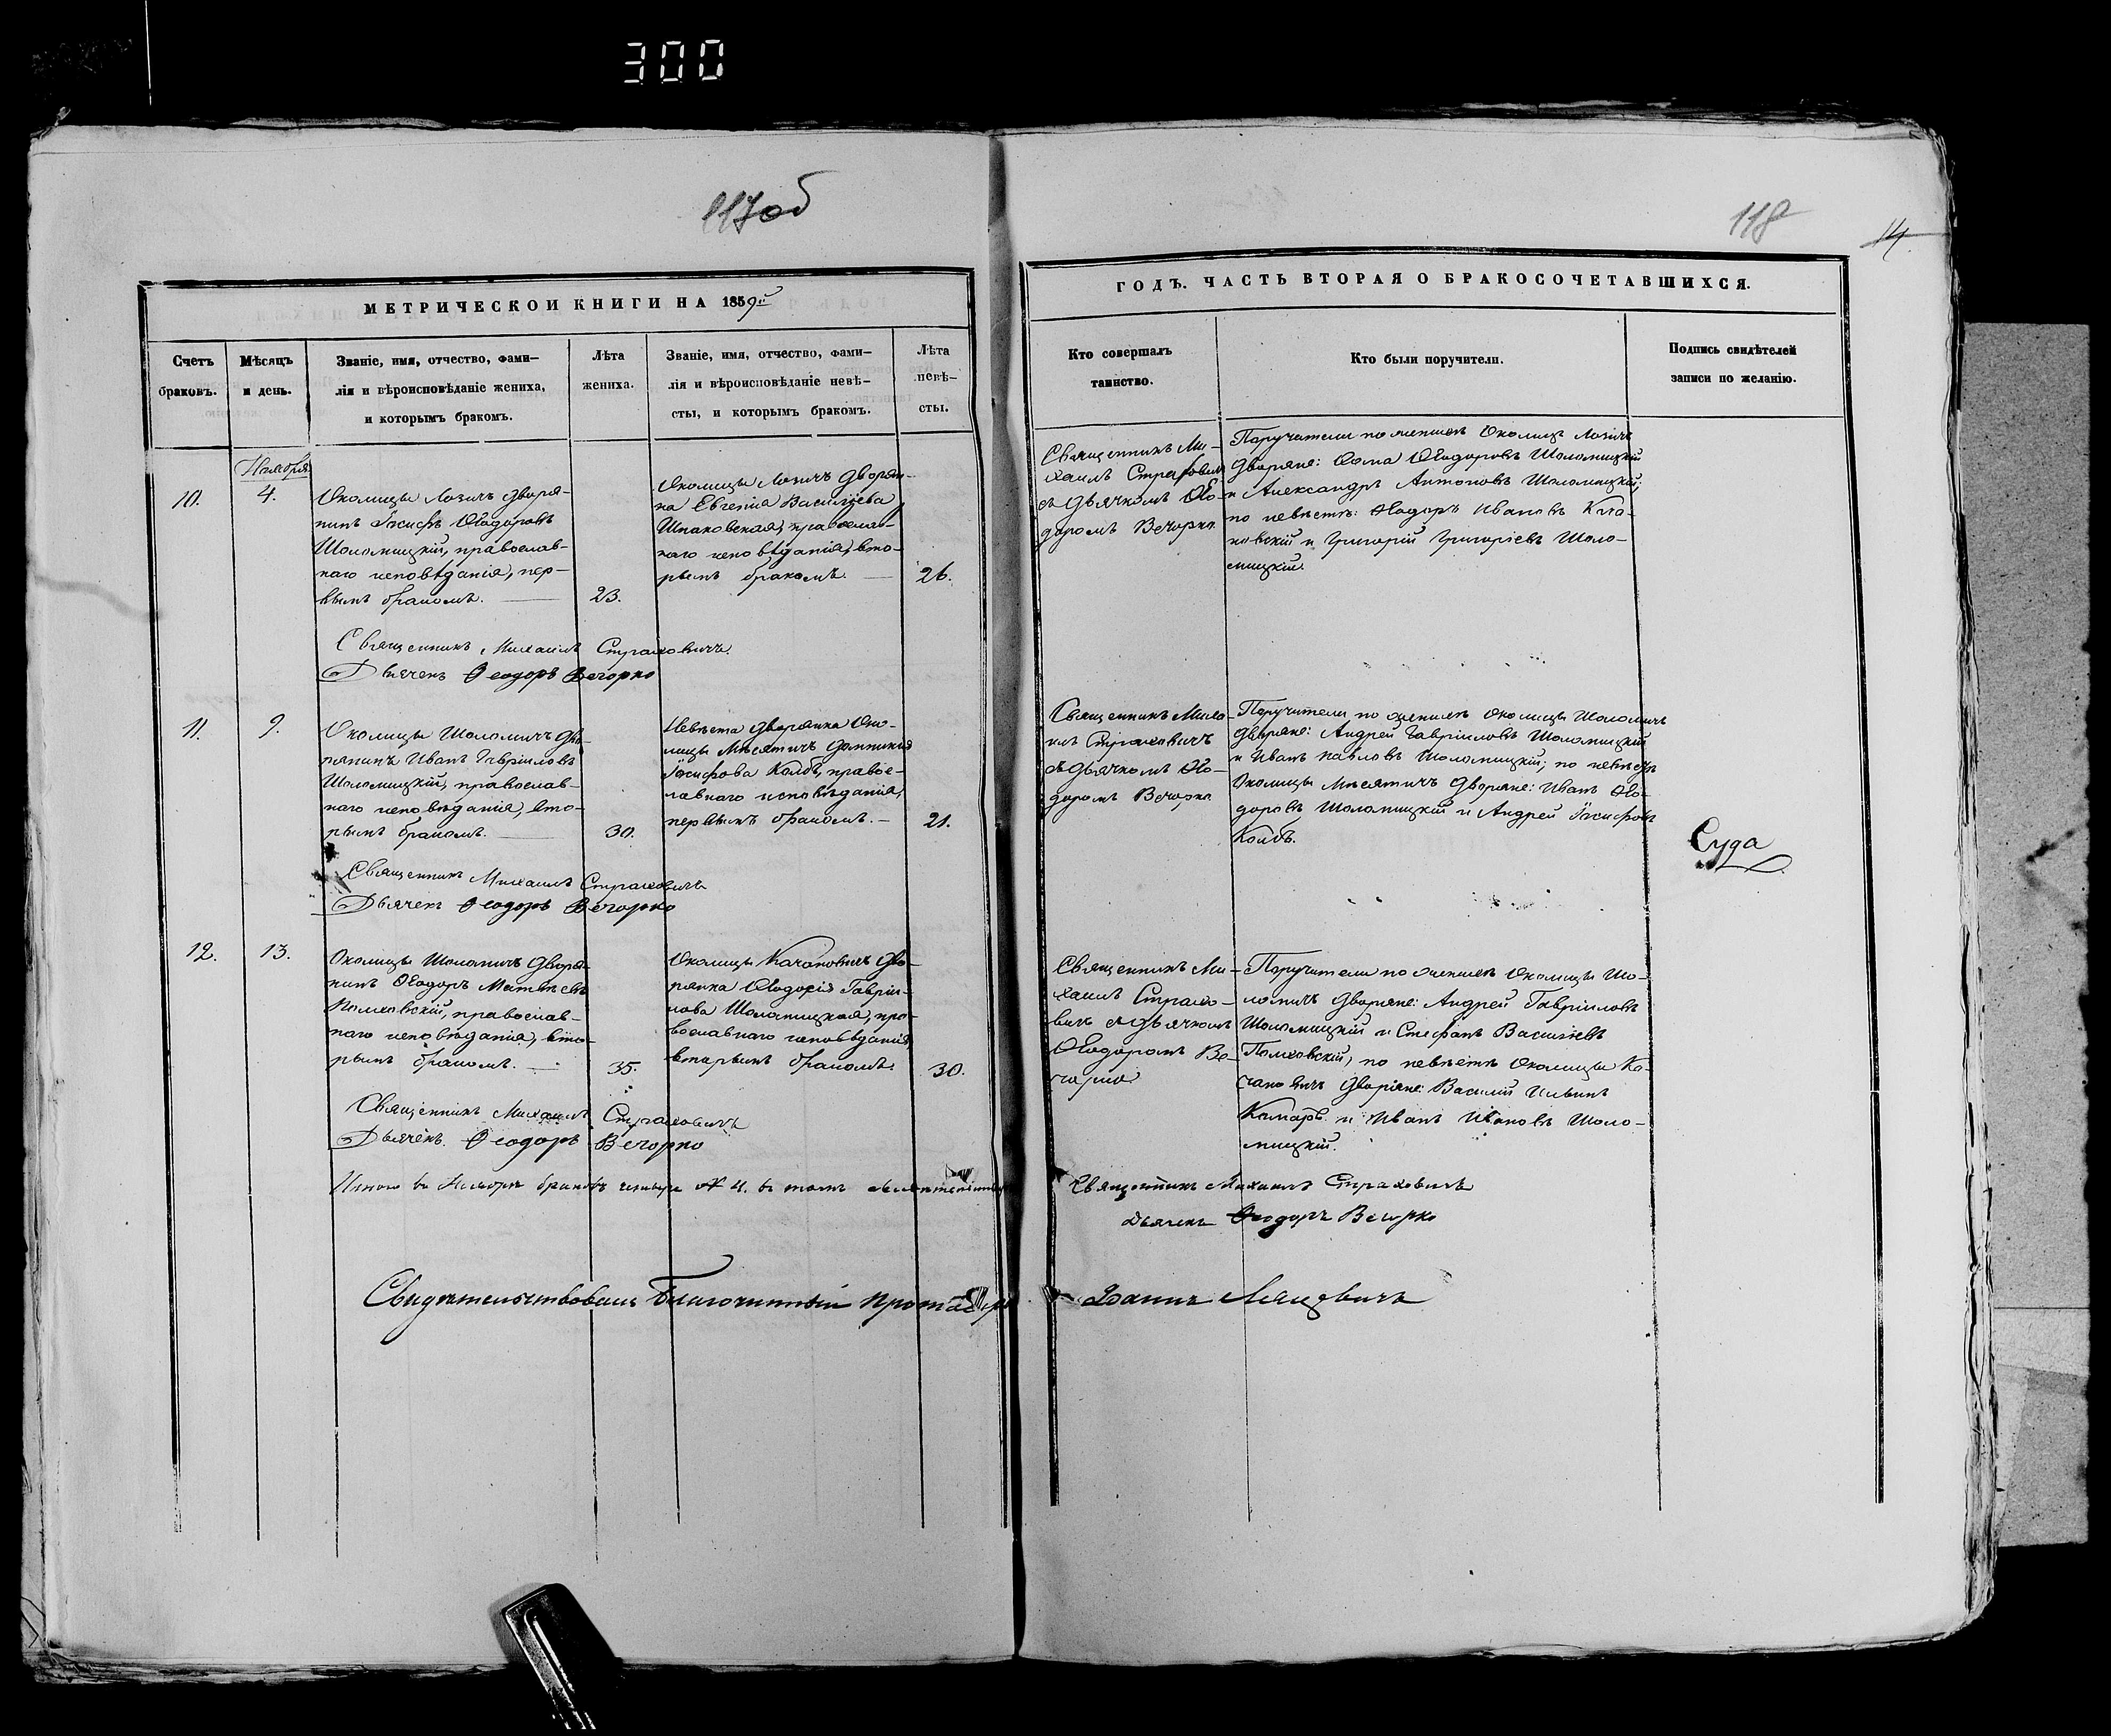 300
117об
118
14
МЕТРИЧЕСКОЙ КНИГИ НА 1859й
Счетъ браковъ.
Мѣсяцъ и день.
Званіе, имя, отчество, фами-
лія и вѣроисповѣданіе жениха,
и которымъ бракомъ.
Лѣта жениха.
Званіе, имя, отчество, фами-
лія и вѣроисповѣданіе невѣ-
сты, и которымъ бракомъ.
Лѣта невѣ-
сты.
ГОДЪ. ЧАСТЬ ВТОРАЯ О БРАКОСОЧЕТАВШИХСЯ.
Кто совершалъ
таинство.
Кто были поручители.
Подпись свидѣтелей
записи по желанію.
Ноября
10.
4.
Околицы Лозичъ дворя-
нинъ Іосифъ Ѳеодоровъ
Шоломицкій, православ-
наго исповѣданія, пер-
вымъ бракомъ.
23.
Околицы Лозичъ дворян-
ка Евгенія Василіева
Шпаковская, православ-
наго исповѣданія, вто-
рымъ бракомъ.
26.
Священникъ Ми-
хаилъ Страховичъ
съ дьячкомъ Ѳео-
доромъ Вечорко
Поручители по женихѣ Околицы Лозичъ
дворяне: Ѳома Ѳеодоровъ Шоломицкій
и Александръ Антоновъ Шоломицкій,
по невѣстѣ: Ѳеодоръ Ивановъ
и Григорій Григоріевъ Шоло-
мицкій.
Священникъ Михаилъ Страховичъ.
Дьячекъ Ѳеодоръ Вечорко
11.
9.
Околицы Шоломичъ дво-
рянинъ Иванъ Гавріиловъ
Шоломицкій, православ-
наго исповѣданія, вто-
рымъ бракомъ.
30.
Невѣста дворянка Око-
лицы Мнсятичъ Домникія
Іосифова Колбъ, правос-
лавнаго исповѣданія,
первымъ бракомъ.
21.
Священникъ Миха-
илъ Страховичъ
съ дьячкомъ Ѳео-
доромъ Вечорко
Поручители по женихѣ Околицы Шоломичъ
дворяне: Андрей Гавріиловъ Шоломицкій
и Иванъ Павловъ Шоломицкій; по невѣстѣ
Околицы Мнсятичъ дворяне: Иванъ Ѳео-
доровъ Шоломицкій и Андрей Іосифовъ
Колбъ.
Суда
Священникъ Михаилъ Страховичъ
Дьячекъ Ѳеодоръ Вечорко
12.
13.
Околицы Шоломичъ дворя-
нинъ Ѳеодоръ Матвѣевъ
Полховскій, православ-
наго исповѣданія, вто-
рымъ бракомъ.
35.
Околицы Качановичъ дво-
рянка Ѳеодосія Гавріи-
лова Шоломицкая, пра-
вославнаго исповѣданія,
вторымъ бракомъ.
30.
Священникъ Ми-
хаилъ Страхо-
вичъ съ дьячкомъ
Ѳеодоромъ Ве-
чорко
Поручители по женихѣ Околицы Шо-
ломичъ дворяне: Андрей Гавріиловъ
Шоломицкій и Стефанъ Василіевъ
Полховскій, по невѣстѣ Околицы Ка-
чановичъ дворяне: Василій Ильинъ
Комаръ и Иванъ Ивановъ Шоло-
мицкій.
Священникъ Михаилъ Страховичъ
Дьячекъ Ѳеодоръ Вечорко
Итого въ Ноябрѣ браковъ четыре № 4. въ томъ
Священникъ Михаилъ Страховичъ
Дьячекъ Ѳеодоръ Вечорко
Свидѣтельствовалъ Благочинный Протоіерей Іоаннъ